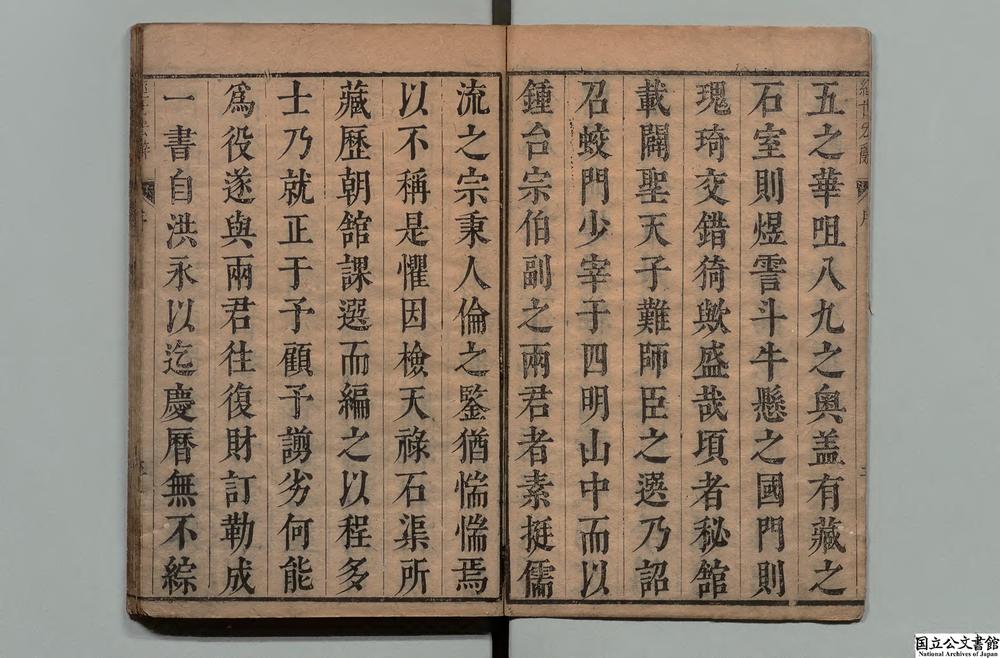 五之華咀八九之奥盖有藏之
石室則煜霅斗牛懸之國門則
瑰琦交錯猗歟盛哉頃者秘舘
載闢聖天子難師臣之選乃詔
召蛟門少宰于四明山中而以
鍾台宗伯副之兩君者素挺儒
流之宗秉人倫之鑒猶惴惴焉
以不稱是懼因檢天祿石渠所
藏歷朝舘課選而編之以程多
士乃就正于予顧予謭劣何能
爲役遂與兩君往復財訂勒成
一書自洪永以迄慶曆無不綜
国立公文書館
National Archives of Japan